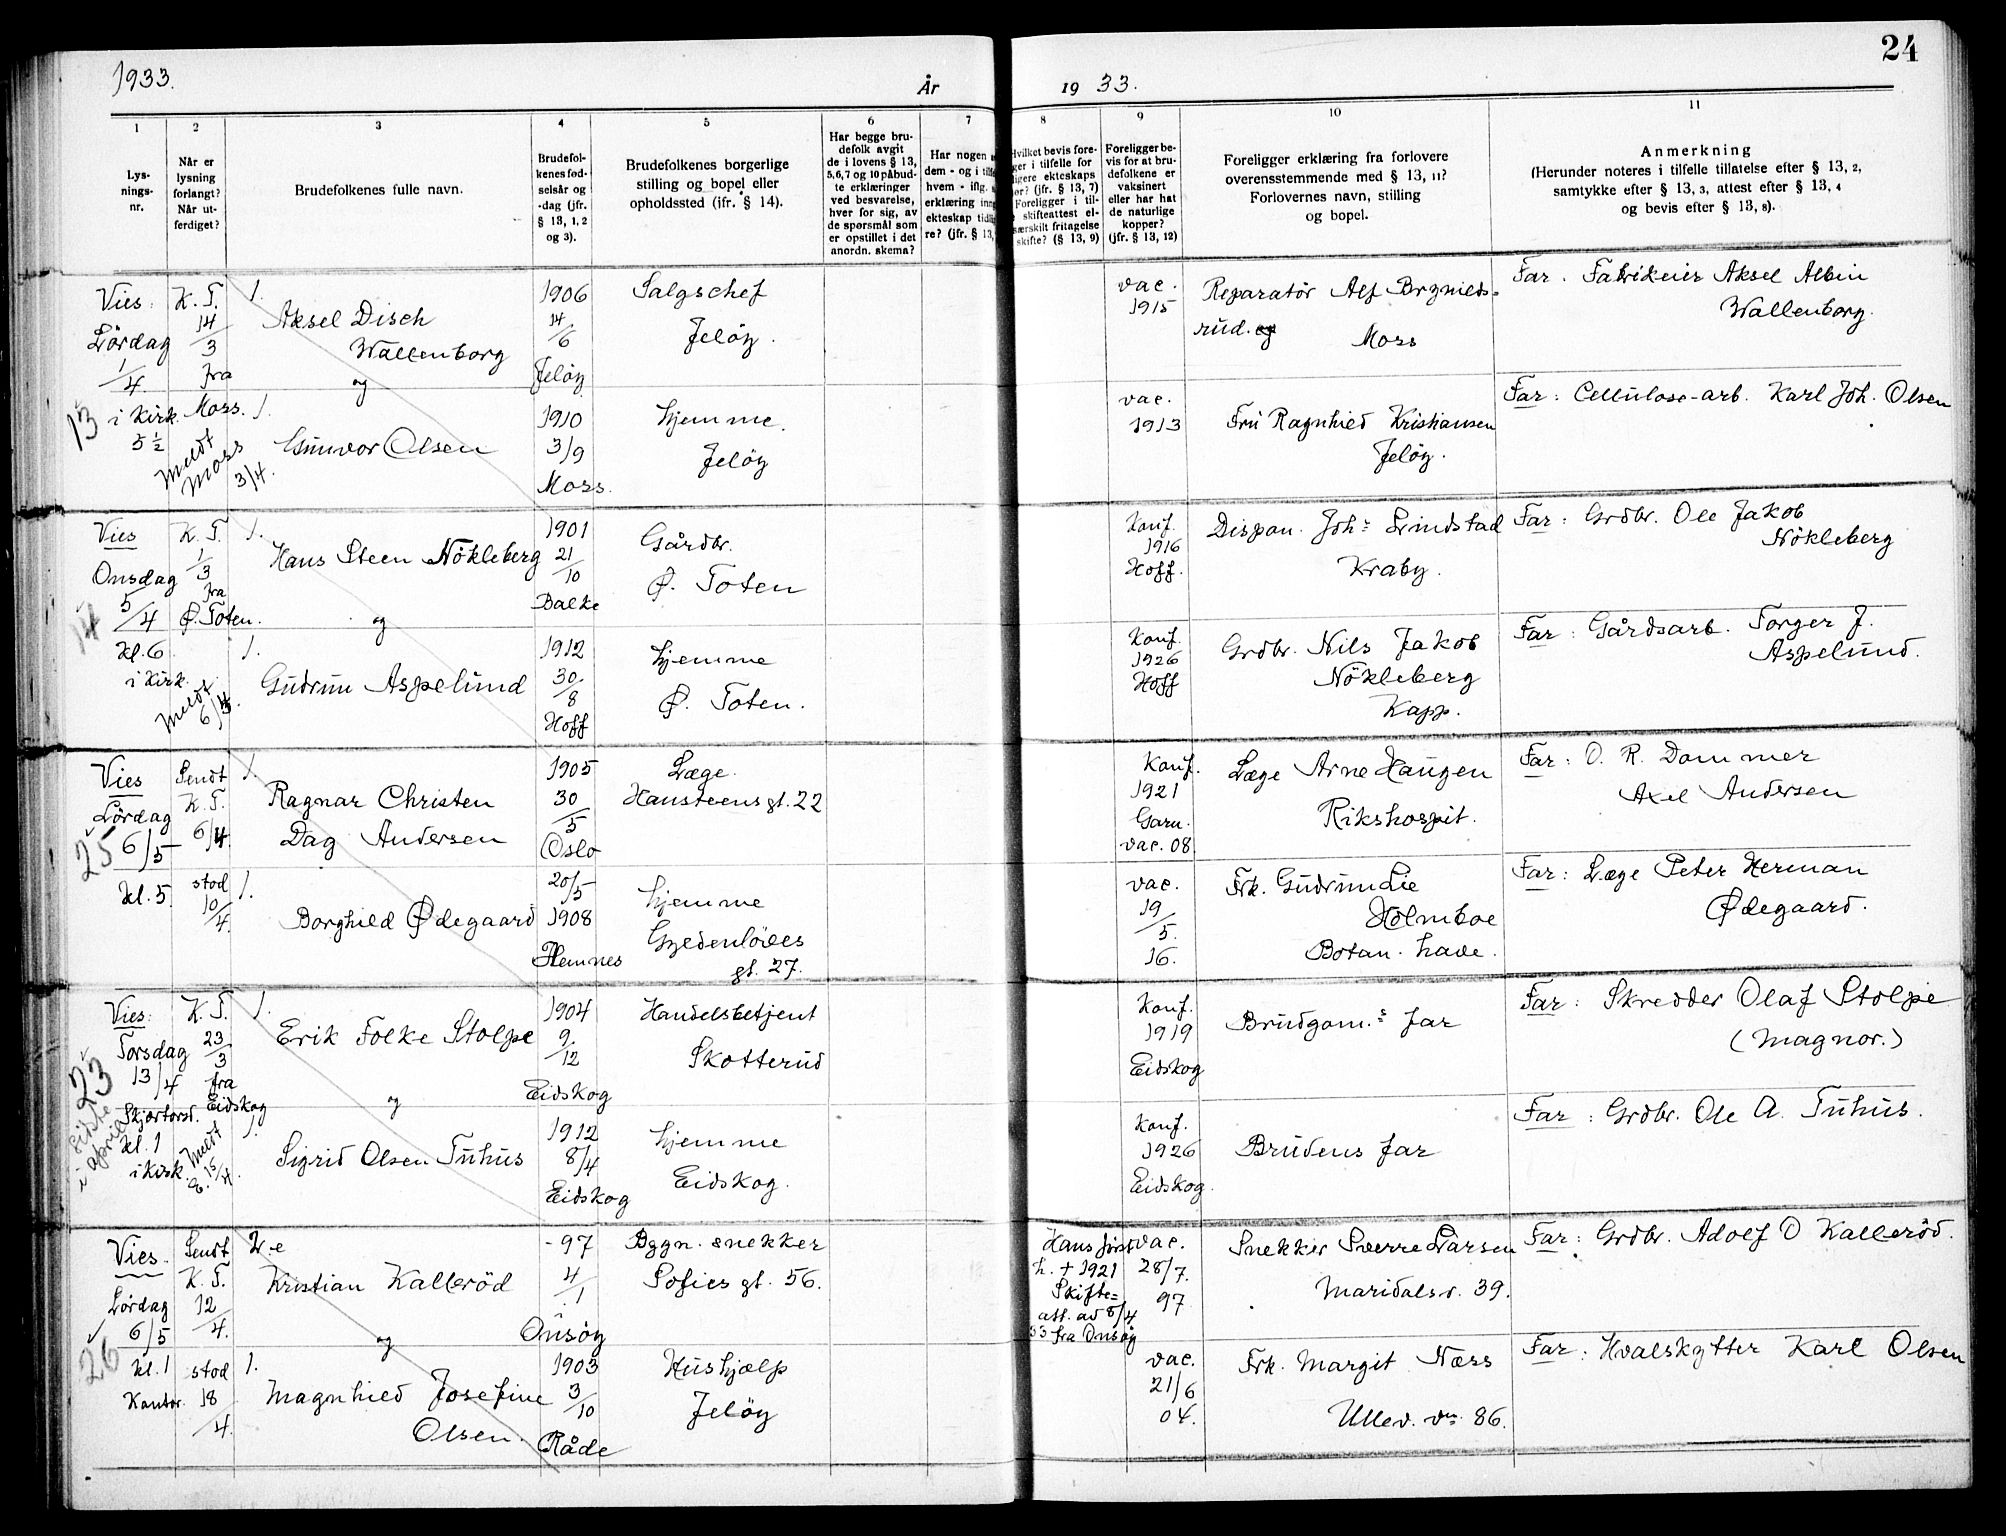 24
1933.
År
19 33.
1
2
3
4
5
6
7
8
9
10
11
Lys-
nings-
nr.
Når er
lysning
forlangt?
Når ut-
ferdiget?
Brudefolkenes fulle navn.
Brudefol-
kenes fød-
selsår og
-dag (jfr.
§ 13, 1, 2
og 3).
Brudefolkenes borgerlige
stilling og bopel eller
opholdssted (ifr. § 14).
Har begge bru-
defolk avgit
de i lovens § 13,
5,6,7 og 10 påbud-
te erklæringer
ved besvarelse,
hver for sig, av
de spørsmål som
er opstillet i det
anordn. skema?
Har nogen
dem - og i tilf
hvem - iflg.
erklæring inn
ekteskap tidl
re? (jfr. § 13,
Hvilket bevis fore-
ger i tilfelle for
ligere ekteskaps
or? (jfr. § 13, 7)
Foreligger i til-
skifteattest el-
særskilt fritagelse
skifte? (§ 13, 9)
Foreligger be-
vis for at bru-
defolkene er
vaksinert
eller har hat
de naturlige
kopper?
(jfr. § 13, 12)
Foreligger erklæring fra forlovere
overensstemmende med § 13, 11?
Forlovernes navn, stilling
og bopel.
Anmerkning
(Herunder noteres i tilfelle tillatelse efter § 13, 2,
samtykke efter § 13, 3, attest efter § 13, 4
og bevis efter § 13, 8).
13
Vies:
Lördag
1/4.
i Kirk.
5 1/2
K. T.
14/3
fra
Moss.
Meldt
Moss
3/4.
1.
Aksel Disch
Wallenborg
og
1.
Gunvor Olsen
1906
14/6
Jeløy
1910
3/9
Moss.
Salgschef
Jeløy.
hjemme.
Jeløy
vac.
1915
vac.
1913
Reparatör Alf Brynilds-
rud. og
Moss
Frü Ragnhild Kristiansen
Jeløy.
Far. Fabrikeier Aksel Albin
Wallenborg.
Far: Cellulose-arb. Karl Joh. Olsen
14
Vies
Onsdag
5/4
kl. 6
i Kirk.
K. T.
1/3
fra
Ø. Toten.
Meldt
6/4.
1.
Hans Steen Nökleberg
og
1.
Gudrun Aspelund
1901
21/10
Balke
1912
30./8
Hoff
Gårdbr.
Ø. Toten
hjemme
Ø. Toten.
Konf.
1916
Hoff.
Konf.
1926
Hoff
Dispon. Johs Lindstad
Kraby.
Grdbr. Nils Jakob
Nökleberg
Kapp.
Far: Grdbr. Ole Jakob
Nökleberg
Far: Gårdsarb. Torger J.
Aspelund.
25
Vies
Lördag
6/5
kl. 5.
Sendt
K. T.
6/4.
stod
10/4.
1.
Ragnar Christen
Dag Andersen
1.
Borghild Ødegaard
1905
30/5
Oslo
20/5
1908
Hemnes
Læge.
Hansteens gt. 22
hjemme
Gyldenlöves
gt. 27.
Konf.
1921
Garn.
vac. 08
vac.
19/5.
16.
Læge Arne Haugen
Rikshospit.
Frk. Gudrun Lie
Holmboe
Botan. have.
Far: O. R. Dommer
Axel Andersen
Far: Læge Peter Herman
Ødegaard.
23
i siste
april
Vies:
Torsdag
13/4
Skjærtorsd.
kl. 1
i Kirk.
K. T.
23/3
fra
Eidskog
Meldt
E. 15/4.
1.
Erik Folke Stolpe
og
1.
Sigrid Olsen Tuhus
1904
9./12
Eidskog
1912
8/4
Eidskog
Handelsbetjent
Skotterud
hjemme
Eidskog.
Konf.
1919
Eidskog
Konf.
1926
Eidskog.
Brudgom.s far
Brudens far
Far: Skredder Olaf Stolpe
(Magnor.)
Far: Grdbr. Ole A. Tuhus.
26
Vies.
Lördag
6/5
kl. 1
Kontor.
Sendt
K. T.
12/4.
stod
18/4.
2.e
Kristian Kallerød
og
1.
Magnhild Josefine
Olsen.
-97
4/1
Onsøy
1903
3/10
Råde
Bygn. snekker
Sofies gt. 56.
Hushjælp
Jeløy
Hans først
h. + 1921
Skifte=
att. ad 8/4
33 fra Onsøy
vac.
28/7.
97
vac.
21/6
04.
Snekker Sverre Larsen
Maridalsv. 39.
Frk. Margit Næss
Ullev. vn. 86.
Far: Grdbr. Adolf O Kallerød.
Far: Hvalskytter Karl Olsen